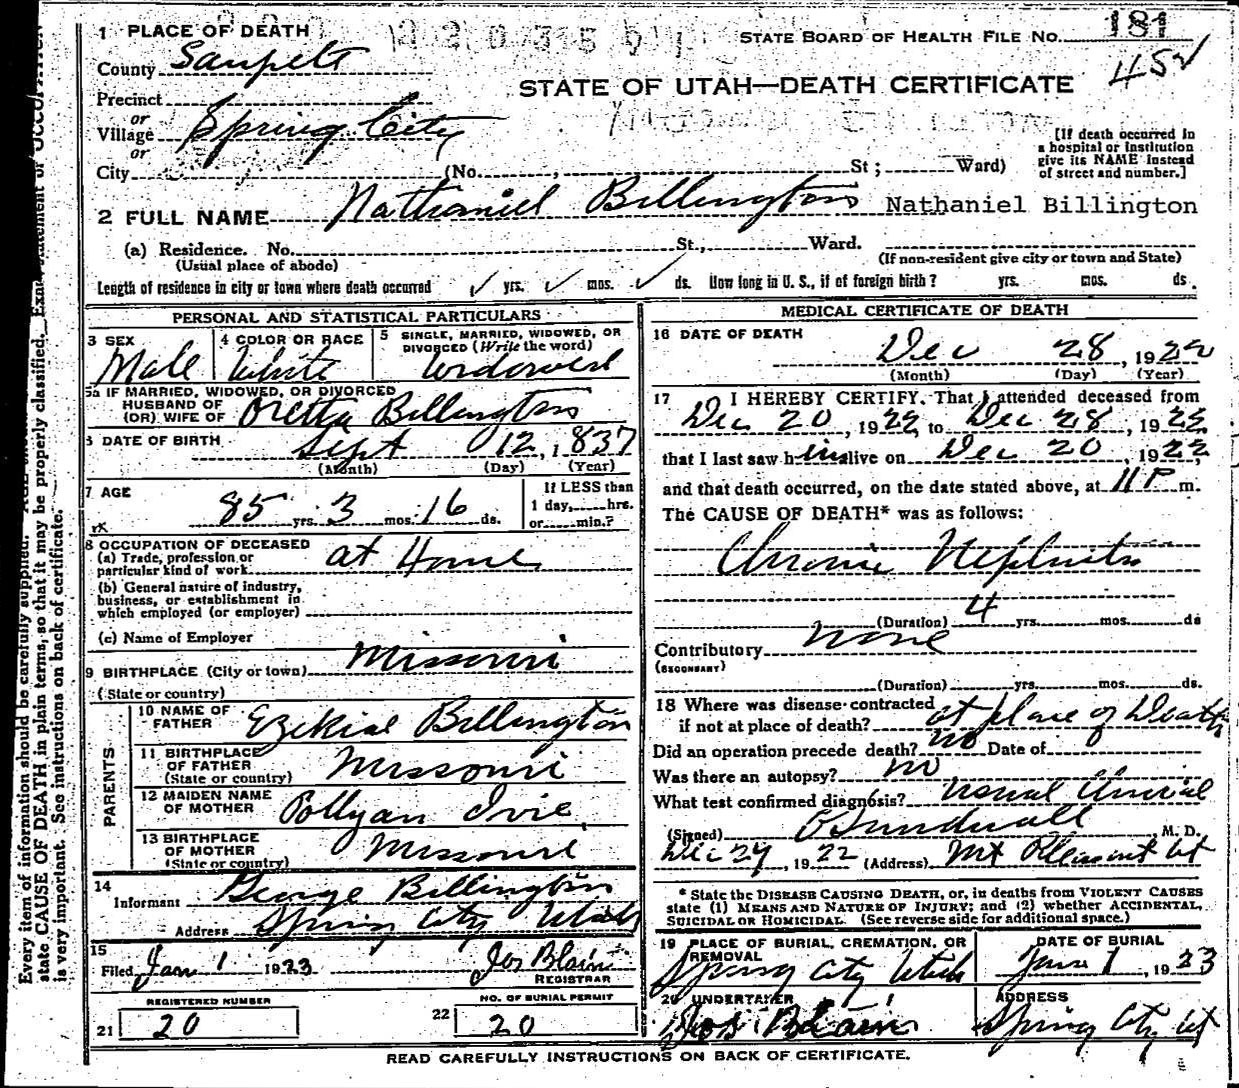 181
1 PLACE OF DEATH
STATE BOARD OF HEALTH FILE NO.
452
County Sanpete
STATE OF UTAH—DEATH CERTIFICATE
Precinct
or
Village Spring City
or
City (No. , St ; Ward)
[If death occurred in
a hospital or institution
give its NAME instead
of street and number.]
2 FULL NAME Nathaniel Billington Nathaniel Billington
(a) Residence. No. St., Ward.
(Usual place of abode) (If non-resident give city or town and State)
Length of residence in city or town where death occurred yrs. mos. ds. How long in U. S., if of foreign birth ? yrs. mos. ds.
PERSONAL AND STATISTICAL PARTICULARS
3 SEX
Male
4 COLOR OR RACE
White
5 SINGLE, MARRIED, WIDOWED, OR
DIVORCED (Write the word)
Widowed
5a IF MARRIED, WIDOWED, OR DIVORCED
HUSBAND OF
(OR) WIFE OF Oretta Billington
6 DATE OF BIRTH Sept 12, 1,837
(Month) (Day) (Year)
7 AGE
85 yrs. 3 mos. 16 ds.
If LESS than
1 day, hrs.
or min.?
8 OCCUPATION OF DECEASED
(a) Trade, profession or
particular kind of work at Home
(b) General nature of industry,
business, or establishment in
which employed (or employer)
(c) Name of Employer
9 BIRTHPLACE (City or town) Missouri
(State or country)
PARENTS
10 NAME OF
FATHER Ezekial Billington
11 BIRTHPLACE
OF FATHER
(State or country) Missouri
12 MAIDEN NAME
OF MOTHER Pollyan Ivie
13 BIRTHPLACE
OF MOTHER
(State or country) Missouri
14
Informant George Billington
Address Spring City Utah
15
Filed Jan 1 1923 Jos Blain
REGISTRAR
REGISTERED NUMBER
21 20
NO. OF BURIAL PERMIT
22 20
MEDICAL CERTIFICATE OF DEATH
16 DATE OF DEATH
Dec 28, 1922
(Month) (Day) (Year)
17 I HEREBY CERTIFY, That I attended deceased from
Dec 20, 1922, to Dec 28, 1922,
that I last saw him alive on Dec 20, 1922,
and that death occurred, on the date stated above, at 11 P m.
The CAUSE OF DEATH* was as follows:
Chronic Nephritis
(Duration) 4 yrs. mos. ds
Contributory none
(SECONDARY)
(Duration) yrs. mos. ds.
18 Where was disease contracted
if not at place of death? at place of Death
Did an operation precede death? no Date of
Was there an autopsy? no
What test confirmed diagnosis? usual
(Signed) O Sundwall, M. D.
Dec 29, 1922 (Address) Mt Pleasant Ut
* State the DISEASE CAUSING DEATH, or, in deaths from VIOLENT CAUSES
state (1) MEANS AND NATURE OF INJURY; and (2) whether ACCIDENTAL,
SUICIDAL OR HOMICIDAL. (See reverse side for additional space.)
19 PLACE OF BURIAL, CREMATION, OR
REMOVAL
Spring City Utah
DATE OF BURIAL
Jan 1, 1923
20 UNDERTAKER
Jos Blain
ADDRESS
Spring City Ut
READ CAREFULLY INSTRUCTIONS ON BACK OF CERTIFICATE.
Every item of information should be carefully supplied.
state CAUSE OF DEATH in plain terms, so that it may be properly classified.
is very important. See instructions on back of certificate.